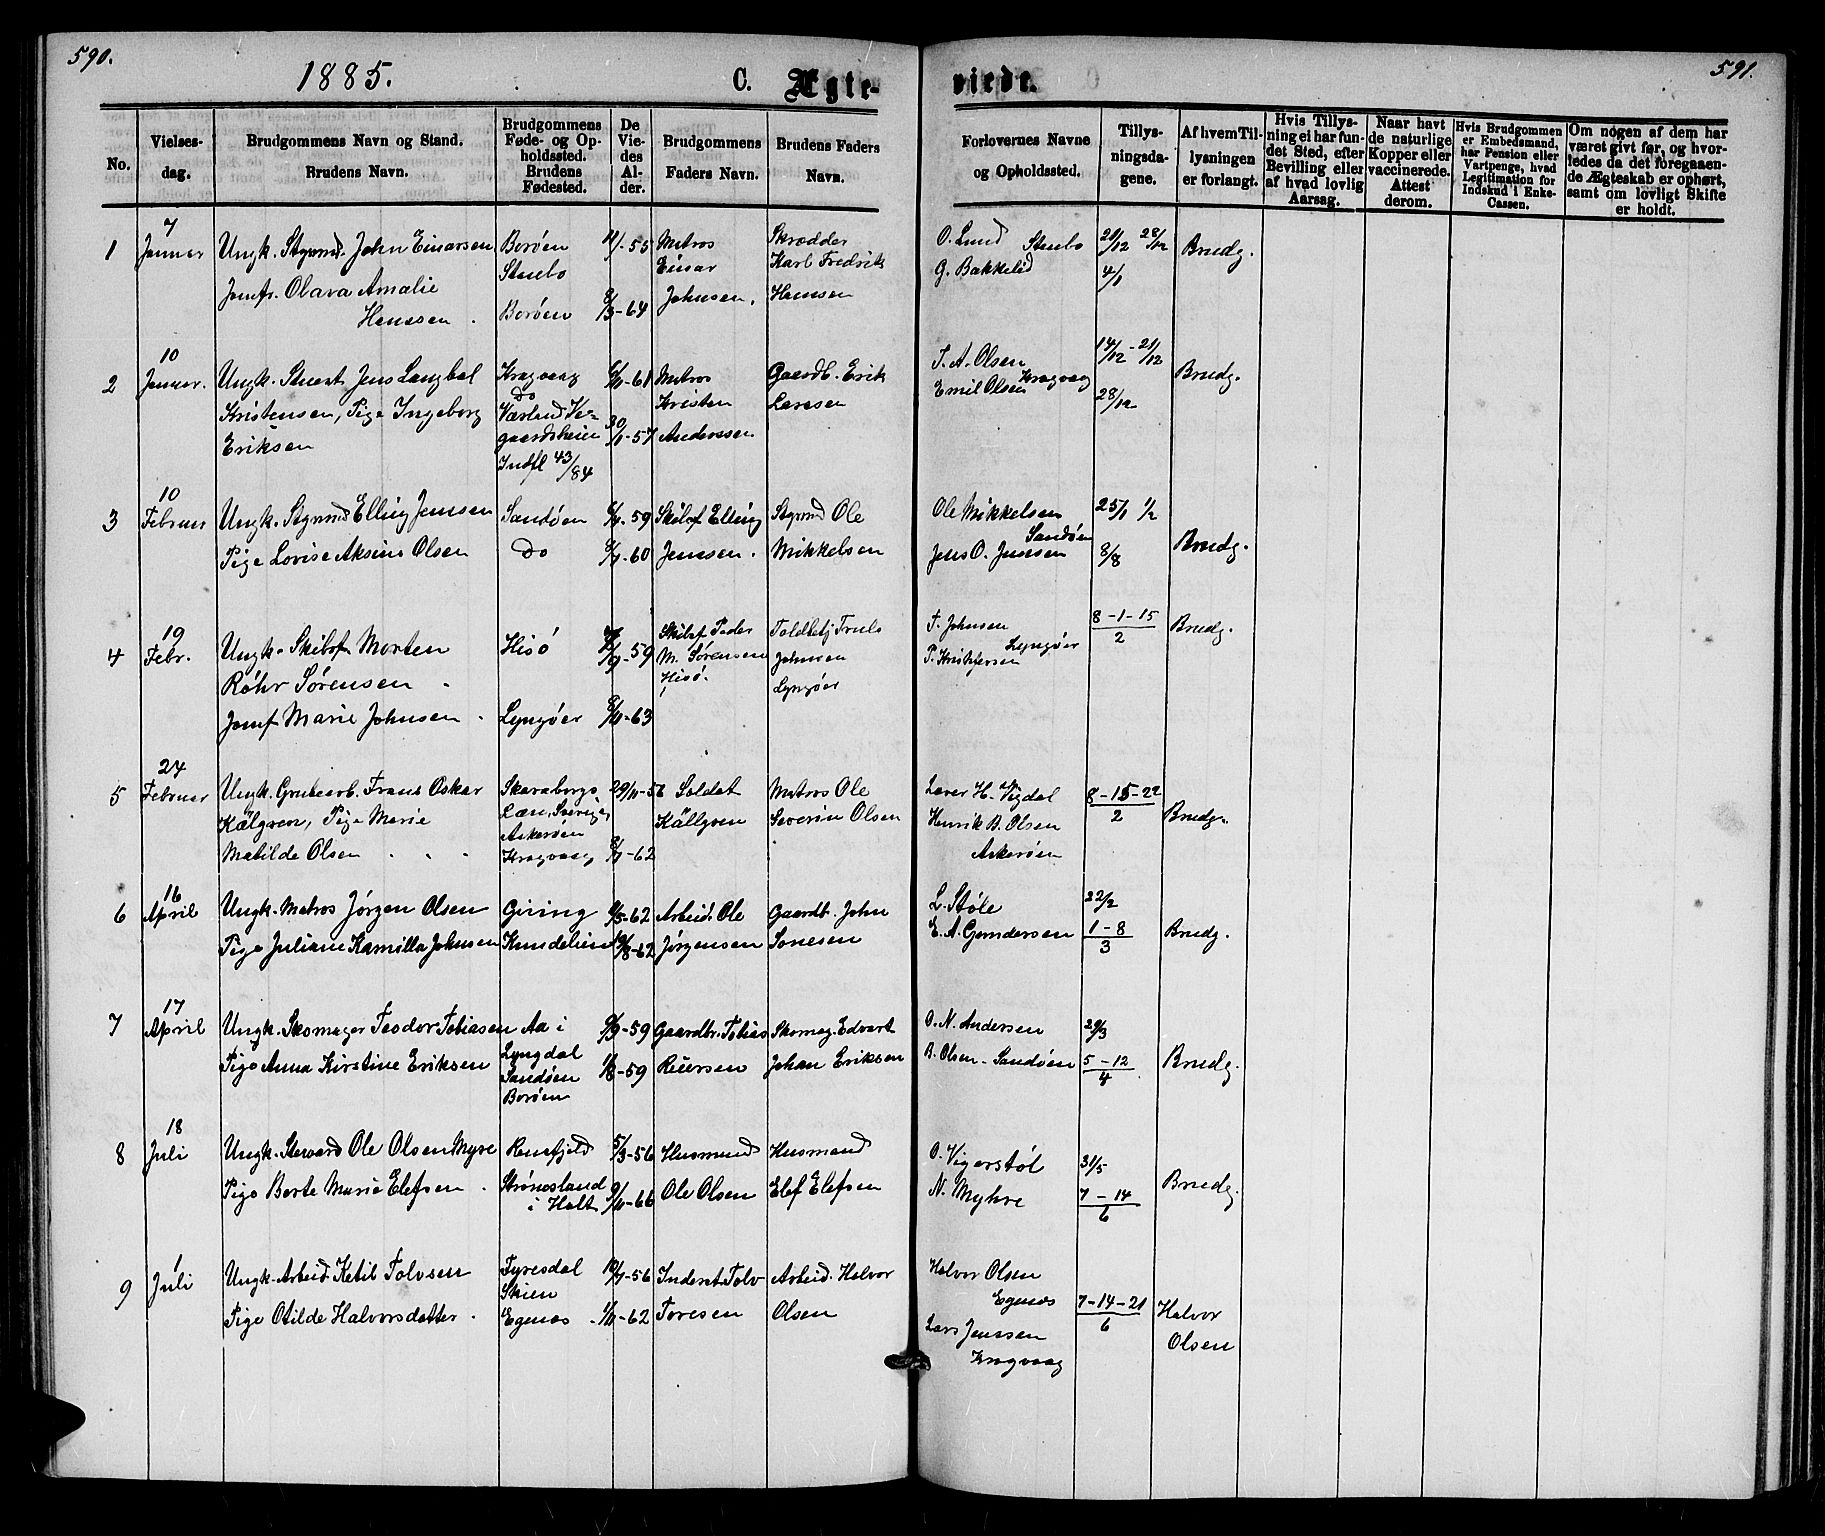 590.
1885.
C. Ægte-
viede.
591.
No.
Vielses-
dag.
Brudgommens Navn og Stand.
Brudens Navn.
Brudgommens
Føde- og Op-
holdssted.
Brudens
Fødested.
De
Vie-
des
Al-
der.
Brudgommens
Faders Navn.
Brudens Faders
Navn.
Forlovernes Navne
og Opholdssted.
Tillys-
ningsda-
gene.
Af hvem Til-
lysningen
er forlangt.
Hvis Tillys-
ning ei har fun-
det Sted, efter
Bevilling eller
af hvad lovlig
Aarsag.
Naar havt
de naturlige
Kopper eller
vaccinerede.
Attest
derom.
Hvis Brudgommen
er Embedsmand,
har Pension eller
Vartpenge, hvad
Legitimation for
Indskud i Enke-
Cassen.
Om nogen af dem har
været givt før, og hvor-
ledes da det foregaaen-
de Ægteskab er ophørt,
samt om lovligt Skifte
er holdt.
1
7
Januar
Ungk. Styrmd. John Einarsen
Jomfr. Olava Amalie
Hanssen
Borøen
Staubo
Borøen
11/1-55
8/3-64
Matros
Einar
Johnsen,
Skrædder
Karl Fredrik
Hanssen
O. Lund
Staubo
G. Bakkelid
21/12 28/12
4/1
Brudg.
2
10
Januar.
Ungk. Stuert Jens Langbal
Kristensen, Pige Ingeborg
Eriksen
Kragvaag
do
Værland Ve-
gaardsheien
Indfl 43/84
6/11-61
30/1-57
Matros
Kristen
Anderssen
Gaardb. Erik
Larssen
T. A. Olsen
Kragvaag
Emil Olsen
14/12-21/12
28/12
Brudg.
3
10
Februar
Ungk. Styrmd Elling Jenssen
Pige Lovise Aksine Olsen
Sandøen
do
59
60
Skibsf Elling
Jenssen.
Styrmd Ole
Mikkelsen
Ole Mikkelsen
Sandøen
Jens O. Jenssen
25/1 1/2
8/8
Brudg.
4
19
Febr.
Ungk. Skibsf. Morten
Røhr Sørensen
Jomf Marie Johnsen
Hisø
Lyngøer
59
8/11-63
Skibsf Peder
M. Sørensen
Hisø.
Toldbetj Truls
Johnsen
Lyngøer
F. Johnsen
Lyngøer
P. Kristofersen
8-1-15
2
Brudg.
5
24
Februar
Ungk. Grubearb. Frans Oskar
Kälgren, Pige Marie
Matilde Olsen
Skaraborgs
Læn, Sverige,
Askerøen
Kragvaag
29/11-56
8/7-62
Soldat
Källgren
Matros Ole
Severin Olsen
Laver H. Vigdal
Henrik B. Olsen
Askerøen
8-15-22
2
Brudg.
6
16
April
Ungk. Matros Jørgen Olsen
Pige Juliane Kamilla Johnsen
Giving
Knudelien
6/5-62
19/8-62
Arbeid. Ole
Jørgensen
Gaardb. John
Sonesen
L. Støle
E. A. Gundersen
22/2
1-8
3
Brudg.
7
17
April
Ungk. Skomager Teodor Tobiasen
Pige Anna Kirstine Eriksen
Aa i
Lyngdal
Sandøen
Borøen
6/9-59
11/8-59
Gaardbr. Tobias
Reiersen
Skomag. Edvart
Johan Eriksen
O. N. Andersen
B. Olsen - Sandøen
29/3
5-12
4
Brudg.
8
18
Juli
Ungk. Steward Ole Olsen Myre
Pige Berte Marie Elefsen
Renefjeld
Strønesland
i Holt
5/3-56
9/11-66
Husmand
Ole Olsen
Husmand
Elef Elefsen
O. Vigerstøl
N. Myhre
31/5
7-14
6
Brudg.
9
1
Juli
Ungk. Arbeid. Ketil Tolvsen
Pige Otilde Halvorsdatter
Fyresdal
Skien
Egenæs
10/7-56
1/11-62
Inderst Tolv
Toresen
Arbeid. Halvor
Olsen
Halvor Olsen
Egenæs
Lars Jenssen
Kragvaag
7-14-21
6
Halvor
Olsen